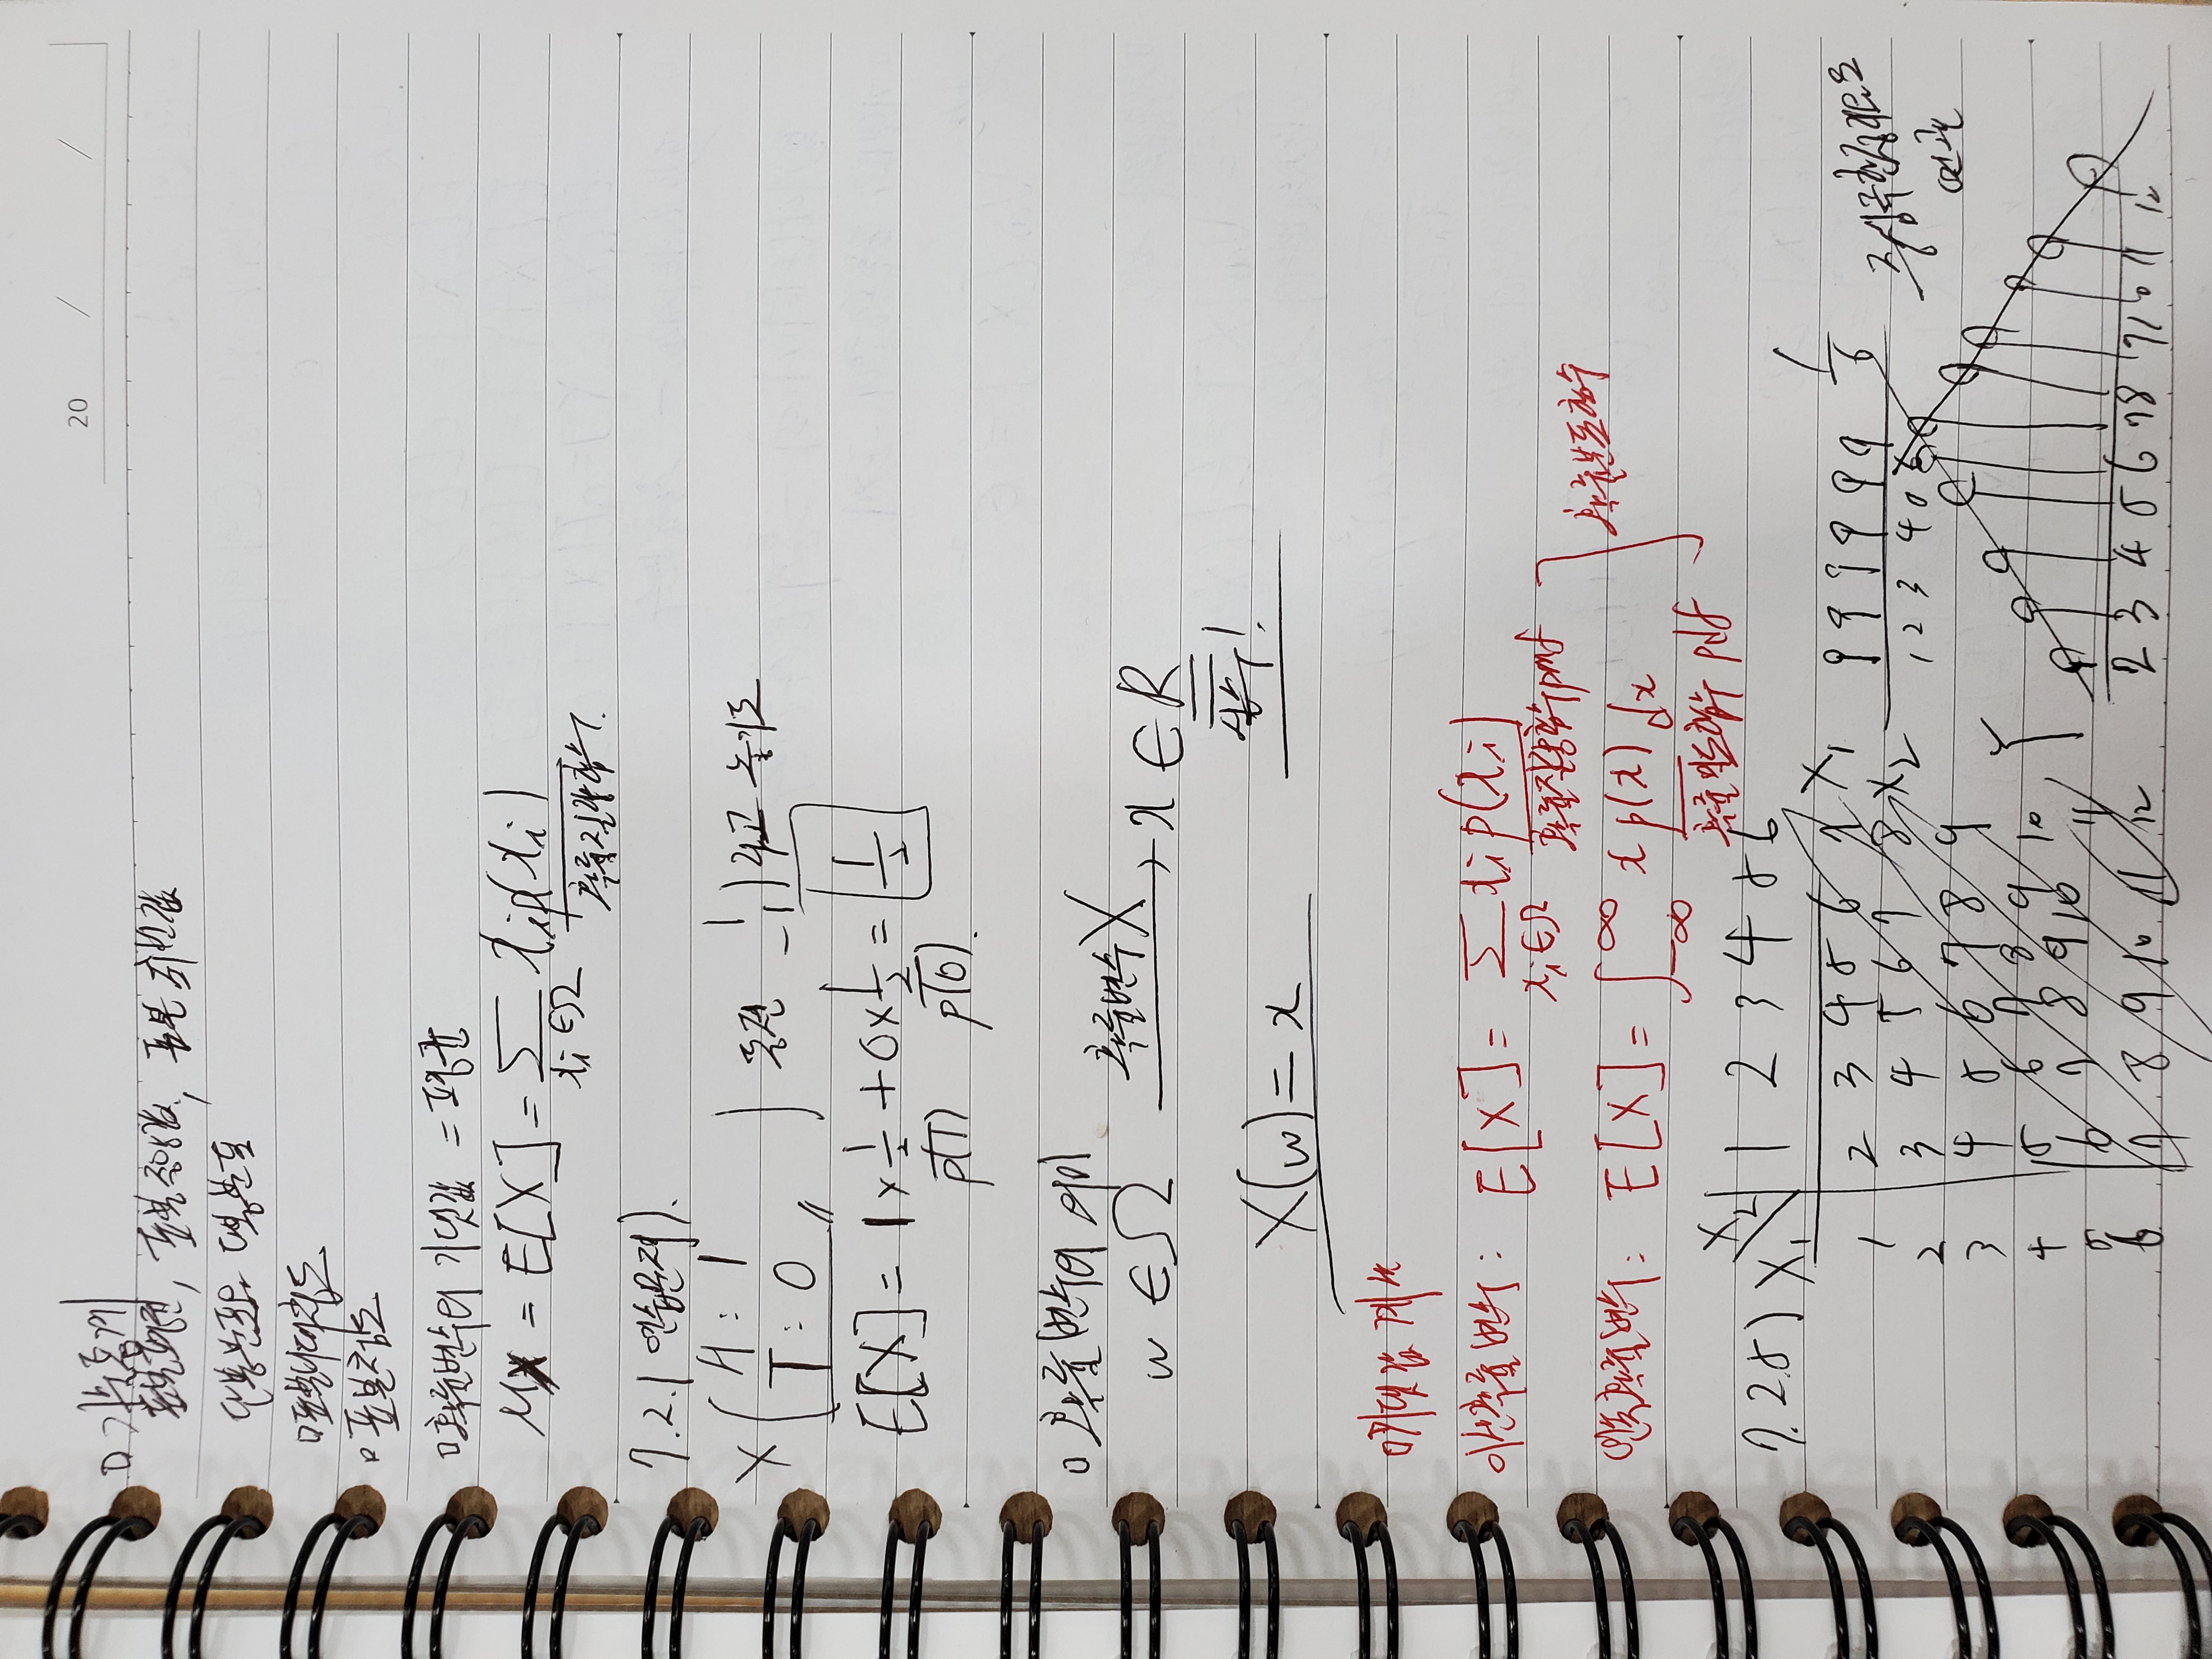 20 / /
□ 기술통계
표본평균, 표본중앙값, 표본 최빈값
단봉분포와 다봉분포
□ 표본비대칭도
□ 표본첨도
□ 확률변수의 기댓값 = 평균
μX = E[X] = Σ xi p(xi)
xi ∈ Ω
확률질량함수.
7.2.1 연습문제).
X ( H : 1
T : 0 ) 동전 1
-1 ) 라고 놓기도
E[X] = 1 × 1/2 + 0 × 1/2 = 1/2
p(1) p(0).
□ 확률변수의 의미
w ∈ Ω 확률변수 X → x ∈ R
실수!
X(w) = x
□ 기댓값 계산
이산확률변수 : E[X] = Σ xi p(xi)
xi ∈ Ω 확률질량함수 pmf
연속확률변수 : E[X] = ∫ -∞ ∞ x p(x) dx
확률밀도함수 pdf
확률분포함수
7.2.5) X1 X2 1 2 3 4 5 6
1 2 3 4 5 6 7
2 3 4 5 6 7 8
3 4 5 6 7 8 9
4 5 6 7 8 9 10
5 6 7 8 9 10 11
6 7 8 9 10 11 12
X1
X2
1/6
1 2 3 4 5 6
중심극한정리와도
연관
Y
2 3 4 5 6 7 8 9 10 11 12